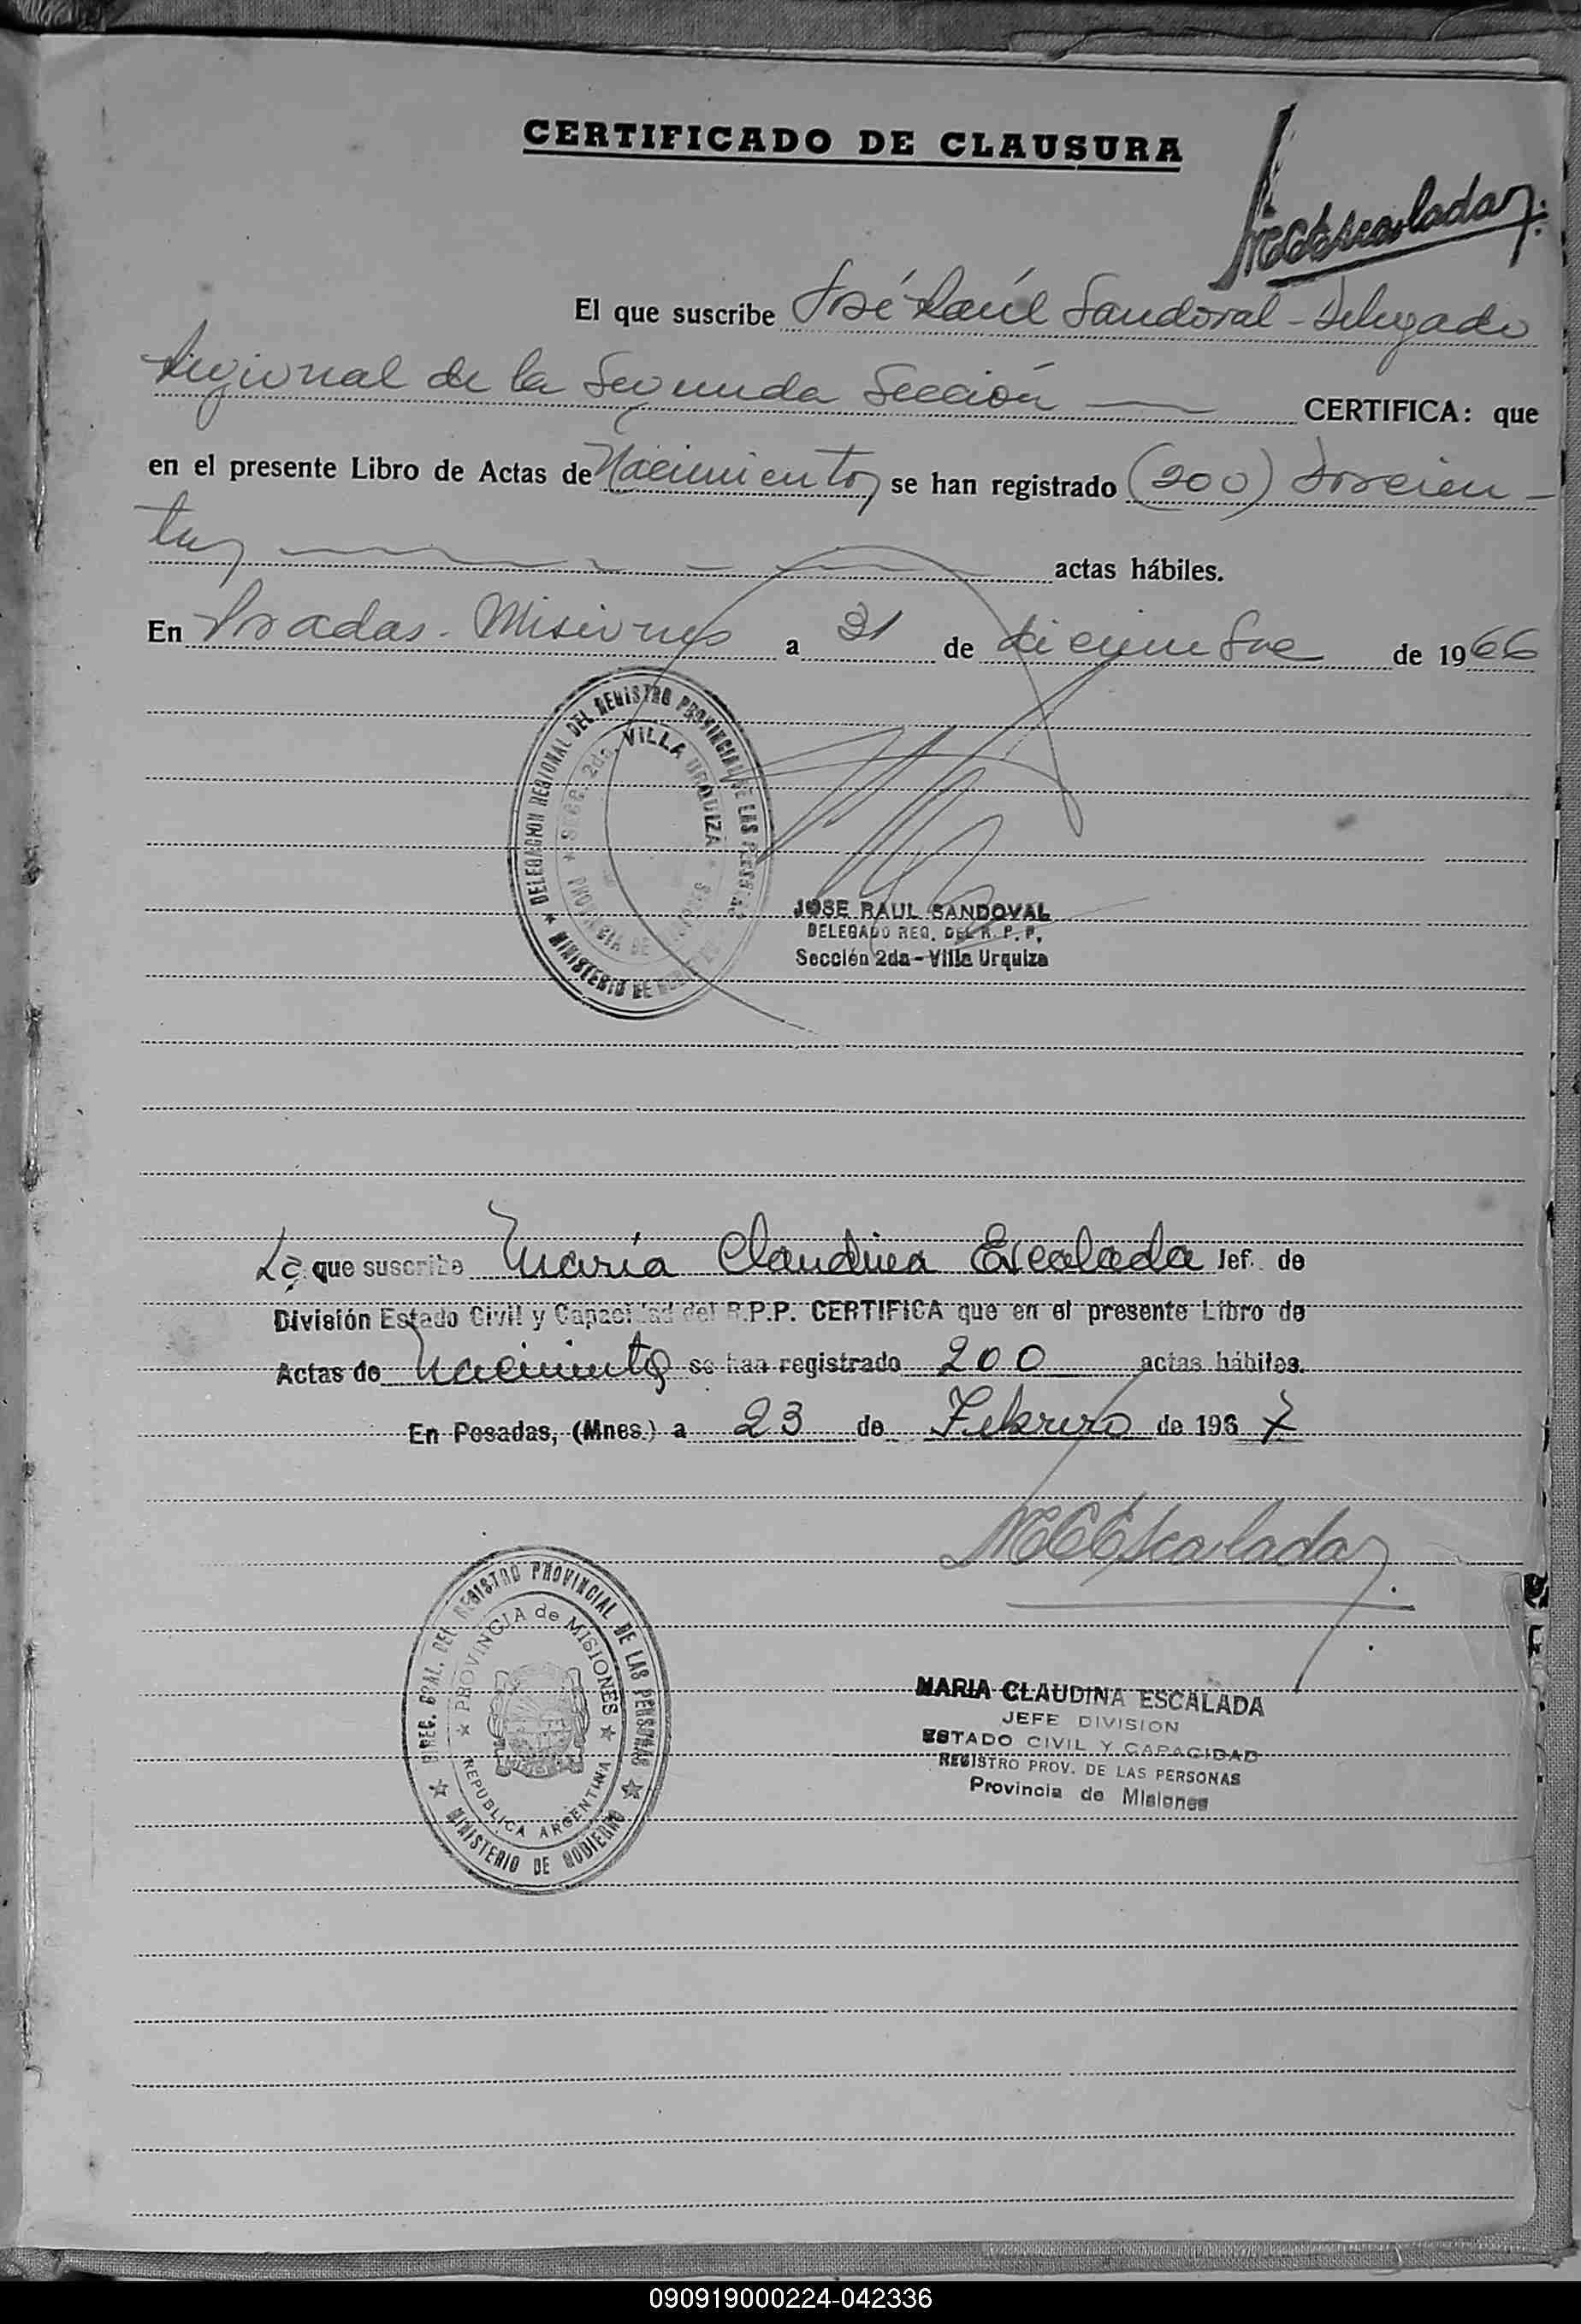 CERTIFICADO DE CLAUSURA
MCEscalada
El que suscribe José Raúl Sandoval - Delegado
Regional de la Segunda Sección — CERTIFICA: que
en el presente Libro de Actas de Nacimientos se han registrado (200) Doscien-
tas actas hábiles.
En Posadas - Misiones a 31 de diciembre de 1966
DELEGACION REGIONAL DEL REGISTRO PROVINCIAL DE LAS PERSONAS
SECC. 2da. VILLA URQUIZA
PROVINCIA DE MISIONES
MINISTERIO DE
JOSE RAUL SANDOVAL
DELEGADO REG. DEL R. P. P.
Sección 2da - Villa Urquiza
La que suscribe María Claudina Escalada Jef. de
División Estado Civil y Capacidad del R.P.P. CERTIFICA que en el presente Libro de
Actas de Nacimientos se han registrado 200 actas hábiles.
En Posadas, (Mnes.) a 23 de Febrero de 1967
MCEscalada
DIREC. GRAL. DEL REGISTRO PROVINCIAL DE LAS PERSONAS
PROVINCIA de MISIONES
REPUBLICA ARGENTINA
MINISTERIO DE GOBIERNO
MARIA CLAUDINA ESCALADA
JEFE DIVISION
ESTADO CIVIL Y CAPACIDAD
REGISTRO PROV. DE LAS PERSONAS
Provincia de Misiones
090919000224-042336